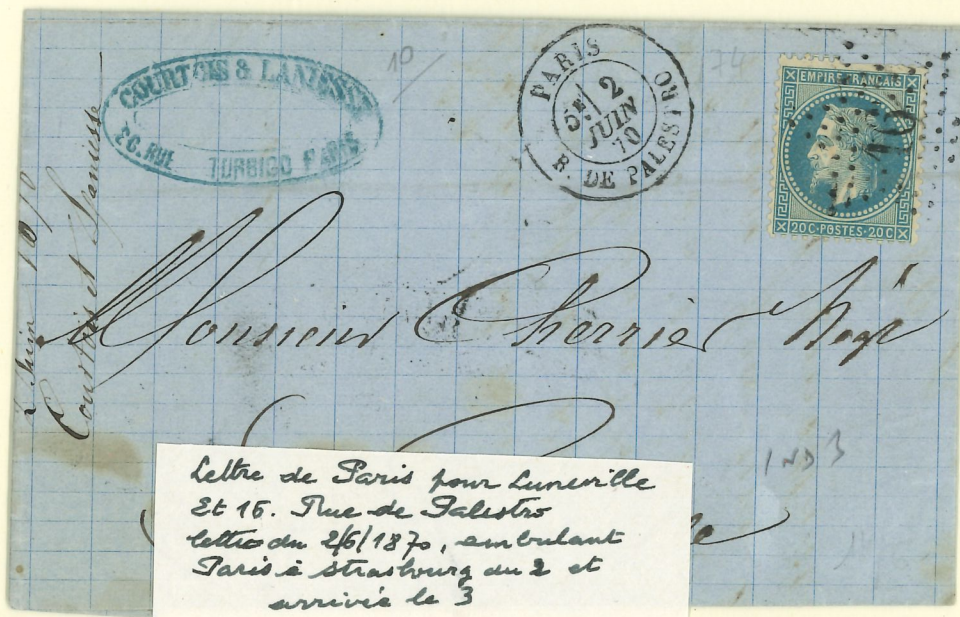 COURTOIS & LANUSSE
26. RUE TURBIGO PARIS
10
PARIS
5E
2
JUIN
70
R. DE PALESTRO
EMPIRE FRANÇAIS
20C·POSTES·20C
Juin 1870
Courtois et Lanusse
Monsieur Cherrier Négt
IND 3
Lettre de Paris pour Luneville
Et 16. Rue de Palestro
lettre du 2/6/1870, ambulant
Paris à Strasbourg du 2 et
arrivée le 3